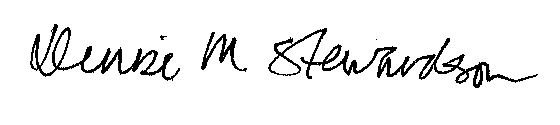 Denise M Stewardson